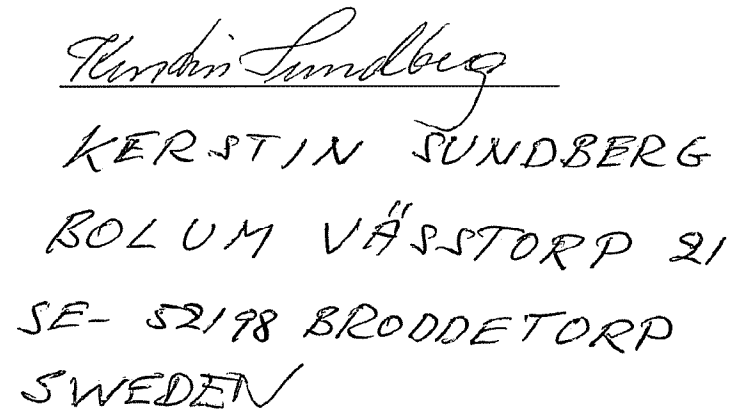 Kerstin Sundberg
KERSTIN SUNDBERG
BOLUM VÄSSTORP 21
SE- 52198 BRODDETORP
SWEDEN